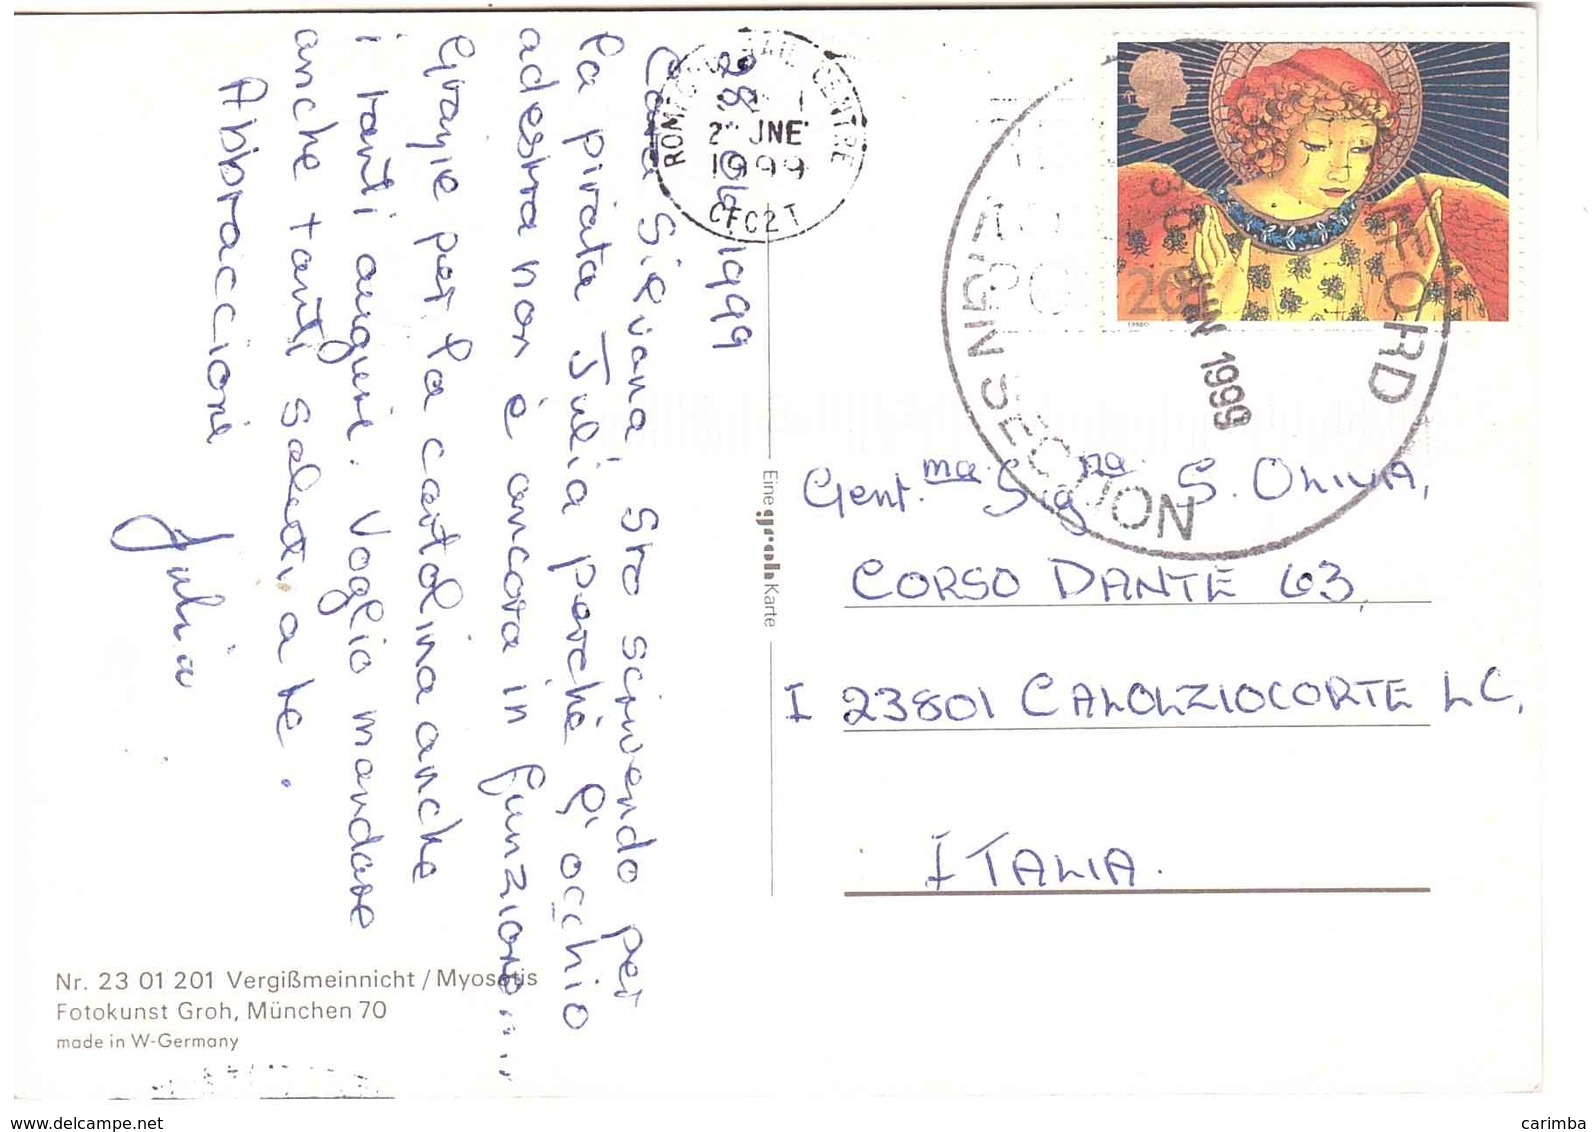 28.06.1999
Cara Silvana, Sto scrivendo per
la pirata Julia perché gi occhio
adesma non è ancora in funzione....
Grazie per la cartolina anche
i tanti auguri. Voglio mandare
anche tanti saluti a te.
Abbraccioni
Julia
ROMFORD MAIL CENTRE
2 JNE
1999
CFC2T
ROMFORD
FOREIGN SECTION
30 JUN 1999
20
Eine groh Karte
Gent.ma Sig.na S. OLIVA,
CORSO DANTE 63,
I 23801 CALOLZIOCORTE LC,
ITALIA.
Nr. 23 01 201 Vergißmeinnicht / Myosotis
Fotokunst Groh, München 70
made in W-Germany
www.delcampe.net
carimba